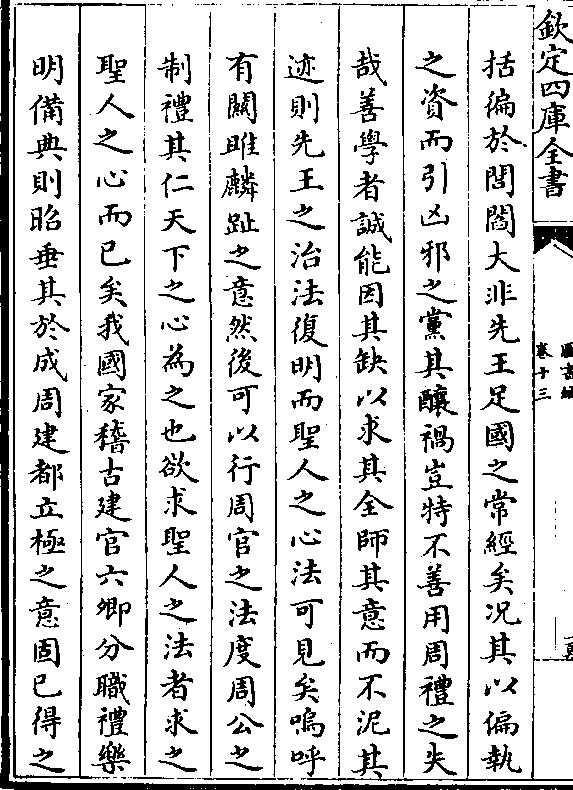 欽定四庫全書
圖書編
卷十三
括徧於閭閻大非先王足國之常經矣况其以偏執
之資而引凶邪之黨其釀禍豈特不善用周禮之失
哉善學者誠能因其缺以求其全師其意而不泥其
迹則先王之治法復明而聖人之心法可見矣嗚呼
有關雎麟趾之意然後可以行周官之法度周公之
制禮其仁天下之心為之也欲求聖人之法者求之
聖人之心而已矣我國家稽古建官六卿分職禮樂
明備典則昭垂其於成周建都立極之意固已得之